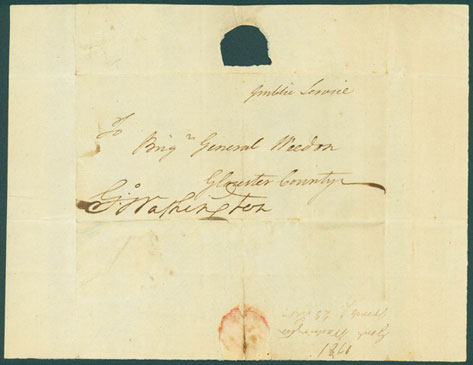 Public Service
To
Brigr General Weedon
Glocester County
Go: Washington
Genl Washington
1781